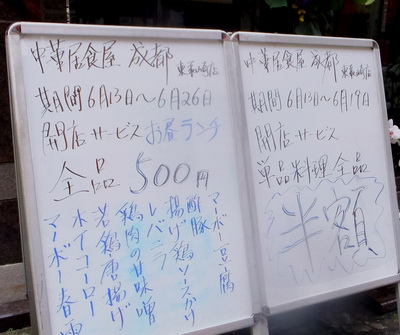 中華居食屋 成都
期間6月13日～6月26日
開店サービス お昼ランチ
全品 500円
マーボー豆腐
酢豚
揚げ鶏ソースかけ
レバニラ
鶏肉の甘味噌
若鶏唐揚げ
ホイコーロー
マーボー春雨
中華居食屋 成都
期間6月13日～6月19日
開店サービス
単品料理全品
半額